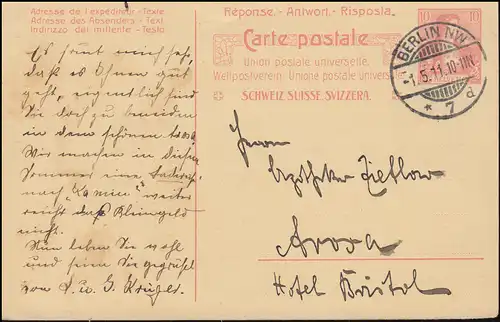 Adresse de l'expéditeur - Texte
Adresse des Absenders - Text
Indirizzo del mittente - Testo
Réponse. - Antwort. - Risposta.
Carte postale
Union postale universelle.
Weltpostverein. Unione postale universale
SCHWEIZ SUISSE. SVIZZERA.
10 10
BERLIN NW
-1.5.11.10-11V.
* 7 d
Es freut mich sehr,
daß es Ihnen gut
geht, eigentlich sind
Sie doch zu beneiden
in dem schönen
Wir machen in diesem
Sommer eine
nach weiter
reicht das Kleingeld
nicht.
Nun leben Sie wohl
und seien Sie gegrüßt
von u. G. Krüger.
Herrn
Apotheker Zietlow
Arosa
Hotel Bristol